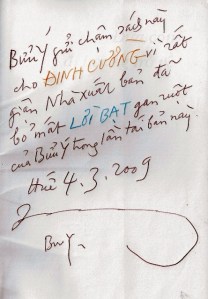 Bửu Ý gửi chậm sách này
cho ĐINH CƯỜNG vì rất
giận Nhà xuất bản đã
bỏ mất LỜI BẠT gan ruột
của Bửu Ý trong lần tái bản này.
Huế 4.3.2009
Bửu Ý